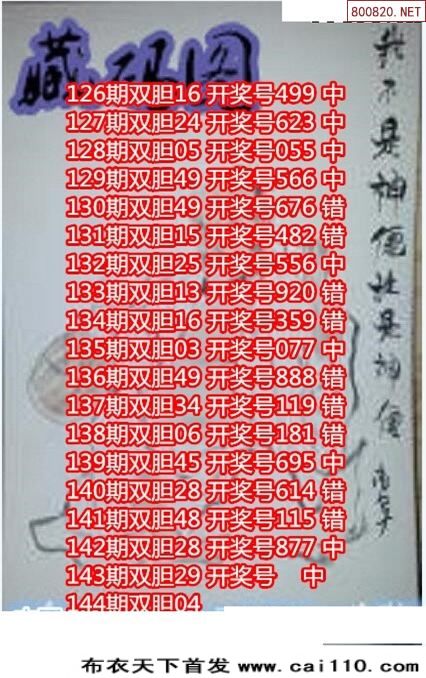 800820.NET
藏码图
126期双胆16 开奖号499 中
127期双胆24 开奖号623 中
128期双胆05 开奖号055 中
129期双胆49 开奖号566 中
130期双胆49 开奖号676 错
131期双胆15 开奖号482 错
132期双胆25 开奖号556 中
133期双胆13 开奖号920 错
134期双胆16 开奖号359 错
135期双胆03 开奖号077 中
136期双胆49 开奖号888 错
137期双胆34 开奖号119 错
138期双胆06 开奖号181 错
139期双胆45 开奖号695 中
140期双胆28 开奖号614 错
141期双胆48 开奖号115 错
142期双胆28 开奖号877 中
143期双胆29 开奖号 中
144期双胆04
我不是神僊
是神僊
布衣天下首发 www.cai110.com